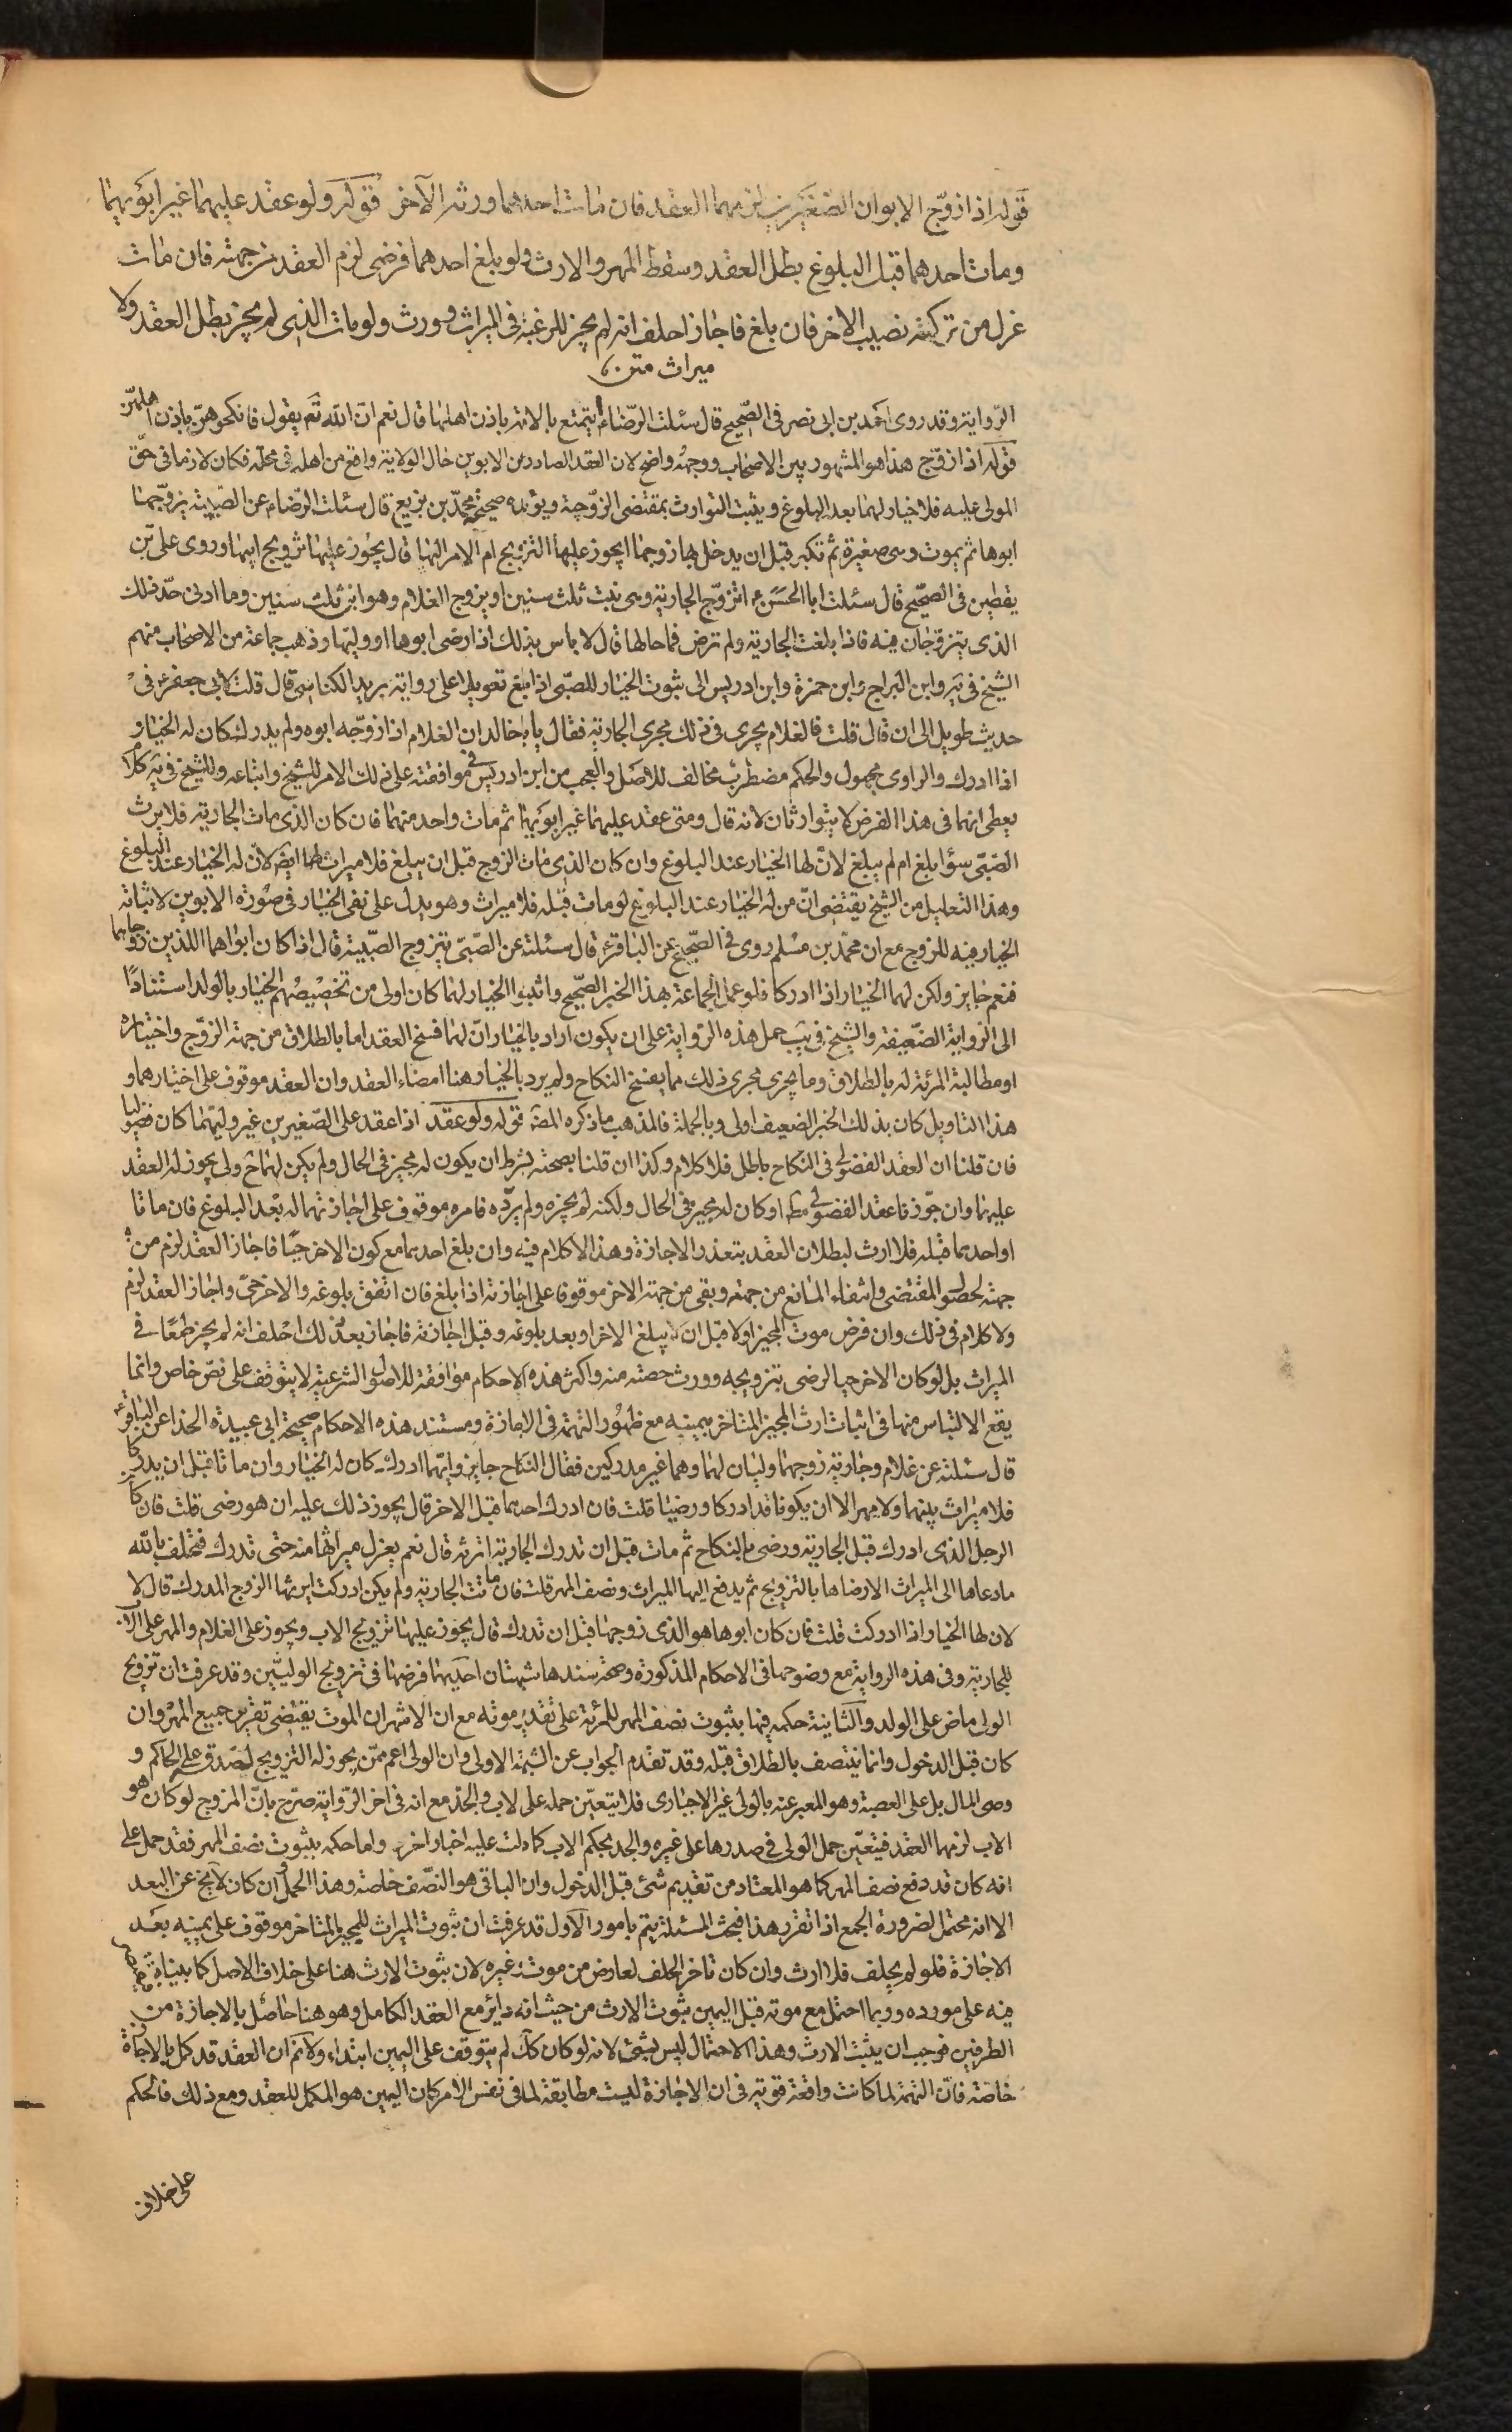 قوله اذا زوّج الابوان الصّغيرين لزمهما العقد فان مات احدهما ورثه الآخر قوله ولو عقد عليهما غير ابويهما
ومات احدهما قبل البلوغ بطل العقد وسقط المهر والارث ولو بلغ احدهما فرضى لزم العقد من جهته فان مات
عزل من تركته نصيب الاخر فان بلغ فاجاز احلف انه لم يجز للرغبة فى الميراث وورث ولو مات الذى لم يجز بطل العقد ولا
ميراث متن
الرّواية وقد روى احمد بن ابى نصر فى الصّحيح قال سئلت الرّضاء ايتمتع بالامة باذن اهلها قال نعم انّ الله تعَ يقول فانكحوهنّ باذن اهلهنّ
قوله اذا زوّج هذا هو المشهور بين الاصحاب ووجهه واضح لان العقد الصادر من الابوين حال الولاية واقع من اهله فى محلّه فكان لازما فى حقّ
المولى عليه فلا خيار لهما بعد البلوغ ويثبت التوارث بمقتضى الزوّجيّة ويؤيده صحيحة محمّد بن بزيع قال سئلت الرّضاء عن الصّبيّة يزوّجها
ابوها ثم يموت وهى صغيرة ثم تكبر قبل ان يدخل بها زوجها ايجوز عليها التزويج ام الامر اليها قال يجوز عليها تزويج ابيها وروى على بن
يقطين فى الصّحيح قال سئلت ابا الحسَن ع اتزوّج الجارية وهى بنت ثلث سنين او يزوج الغلام وهو ابن ثلث سنين وما ادنى حدّ ذلك
الذى يتزوّجان فيه فاذا بلغت الجارية ولم ترض فما حالها قال لا باس بذلك اذا رضى ابوها او وليّها وذهب جماعة من الاصحاب منهم
الشيخ فى يَه وابن البراج وابن حمزة وابن ادريس الى ثبوت الخيار للصبّى اذا بلغ تعويلا على رواية بريد الكناسى قال قلت لابى جعفر ع فى
حديث طويل الى ان قال قلت فالغلام يجرى فى ذلك مجرى الجارية فقال يا با خالد ان الغلام اذا زوّجه ابوه ولم يدرك كان له الخيار
اذا ادرك والراوى مجهول والحكم مضطرب مخالف للاصَل والعجب من ابن ادريس فى موافقته على ذلك الامر للشيخ واتباعه وللشيخ فى يَه كلام
يعطى انهما فى هذا الفرض لا يتوارثان لانه قال ومتى عقد عليهما غير ابويهما ثم مات واحد منهما فان كان الذى مات الجارية فلا يرث
الصّبّى سواء بلغ ام لم يبلغ لانّ لها الخيار عند البلوغ وان كان الذى مات الزوج قبل ان يبلغ فلا ميراث لها ايضَ لانّ له الخيار عند البلوغ
وهذا التعليل من الشيخ يقتضى انّ من له الخيار عند البلوغ لو مات قبله فلا ميراث وهو يدل على نفى الخيار فى صورة الابوين لاثباته
الخيار فيه للزوج مع ان محمّد بن مسلم روى فى الصّحيح عن الباقر ع قال سئلته عن الصّبىّ يتزوج الصّبية قال اذا كان ابواهما اللذين زوجاهما
فنعم جايز ولكن لهما الخيار اذا ادركا فلو عمل الجماعة بهذا الخبر الصّحيح واثبتوا الخيار لهما كان اولى من تخصيصهم الخيار بالولد استنادًا
الى الرّواية الضّعيفة والشيخ فى يَب حمل هذه الرّواية على ان يكون اراد بالخيار انّ لهما فسخ العقد اما بالطلاق من جهة الزوّج واختياره
او مطالبة المرئة له بالطلاق وما يجرى مجرى ذلك مما يفسخ النكاح ولم يرد بالخيار هنا امضاء العقد وان العقد موقوف على اختيارهما و
هذا التاويل كان بذلك الخبر الضعيف اولى وبالجملة فالمذهب ما ذكره المصَ قوله ولو عقد اذا عقد على الصّغيرين غير وليّهما كان فضوليا
فان قلنا ان العقد الفضولى فى النكاح باطل فلا كلام وكذا ان قلنا بصحته بشرط ان يكون له مجيز فى الحال ولم يكن لهما ح ولى يجوز له العقد
عليهما وان جوّزنا عقد الفضولى مطَ او كان له مجيز فى الحال ولكنه لم يجزه ولم يردّه فامره موقوف على اجازتهما له بعد البلوغ فان ماتا
او احدهما قبله فلا ارث لبطلان العقد بتعذر الاجازة وهذا لا كلام فيه وان بلغ احدهما مع كون الاخر حيّا فاجاز العقد لزم من
جهته لحصول المقتضى وانتفاء المانع من جهته وبقى من جهة الاخر موقوفا على اجازته اذا بلغ فان اتفق بلوغه والاخر حىّ واجاز العقد لزم
ولا كلام فى ذلك وان فرض موت المجيز اولا قبل ان يبلغ الاخر او بعد بلوغه وقبل اجازته فاجاز بعد ذلك احلف انه لم يجز طمعًا فى
الميراث بل لو كان الاخر حيا لرضى بتزويجه وورث حصته منه واكثر هذه الاحكام موافقة للاصول الشرعية لا يتوقف على نصّ خاص وانما
يقع الالتباس منها فى اثبات ارث المجيز المتاخر بيمينه مع ظهور التهمة فى الاجازة ومستند هذه الاحكام صحيحة ابى عبيدة الحذا عن الباقر ع
قال سئلته عن غلام وجارية زوجهما وليان لهما وهما غير مدركين فقال النكاح جايز وايهما ادرك كان له الخيار وان ماتا قبل ان يدركا
فلا ميراث بينهما ولا مهر الا ان يكونا قد ادركا ورضيا قلت فان ادرك احدهما قبل الاخر قال يجوز ذلك عليه ان هو رضى قلت فان كان
الرجل الذى ادرك قبل الجارية ورضى بالنكاح ثم مات قبل ان تدرك الجارية اترثه قال نعم يعزل ميراثها منه حتى تدرك فتحلف بالله
ما دعاها الى الميراث الا رضاها بالتزويج ثم يدفع اليها الميراث ونصف المهر قلت فان ماتت الجارية ولم يكن ادركت ايرثها الزوج المدرك قال لا
لان لها الخيار اذا ادركت قلت فان كان ابوها هو الذى زوجها قبل ان تدرك قال يجوز عليها تزويج الاب ويجوز على الغلام والمهر على الاب
للجارية وفى هذه الرواية مع وضوحها فى الاحكام المذكورة وصحة سندها شبهتان احديهما فرضها فى تزويج الوليّين وقد عرفت ان تزويج
الولى ماض على الولد والثانية حكمه فيها بثبوت نصف المهر للمرئة على تقدير موته مع ان الاشهر ان الموت يقتضى تقرير جميع المهر وان
كان قبل الدخول وانما يتنصف بالطلاق قبله وقد تقدم الجواب عن الشبهة الاولى وان الولى اعم ممّن يجوز له التزويج لصدقه على الحاكم و
وصى المال بل على العصبة وهو المعبر عنه بالولى غير الاجبارى فلا يتعيّن حمله على لاب والجدّ مع انه فى اخر الرّواية صرّح بانّ المزوج لو كان هو
الاب لزمهما العقد فيتعيّن حمل الولى فى صدرها على غيره والجد بحكم الاب كما دلت عليه اخبار اخر واما حكمه بثبوت نصف المهر فقد حمل على
انه كان قد دفع نصف المهر كما هو المعتاد من تقديم شئ قبل الدخول وان الباقى هو النصّف خاصة وهذا الحمل وان كان لا يخ عن البعد
الا انه محتمل لضرورة الجمع اذا تقرر هذا فبحث المسئلة يتم بامور الاول قد عرفت ان ثبوت الميراث للمجيز المتاخر موقوف على يمينه بعد
الاجازة فلو لم يحلف فلا ارث وان كان تاخر الحلف لعارض من موت وغيره لان ثبوت الارث هنا على خلاف الاصل كما بيناه
فيه على مورده وربما احتمل مع موته قبل اليمين ثبوت الارث من حيث انه داير مع العقد الكامل وهو هنا حاصل بالاجازة من
الطرفين فوجب ان يثبت الارث وهذا الاحتمال ليس بشئ لانه لو كان كك لم يتوقف على اليمين ابتداء ولا نمَ ان العقد قد كمل بالاجازة
خاصّة فانّ التهمة لما كانت واقعة قوية فى ان الاجازة ليست مطابقة لما فى نفس الامر كان اليمين هو المكمل للعقد ومع ذلك فالحكم
على خلاف